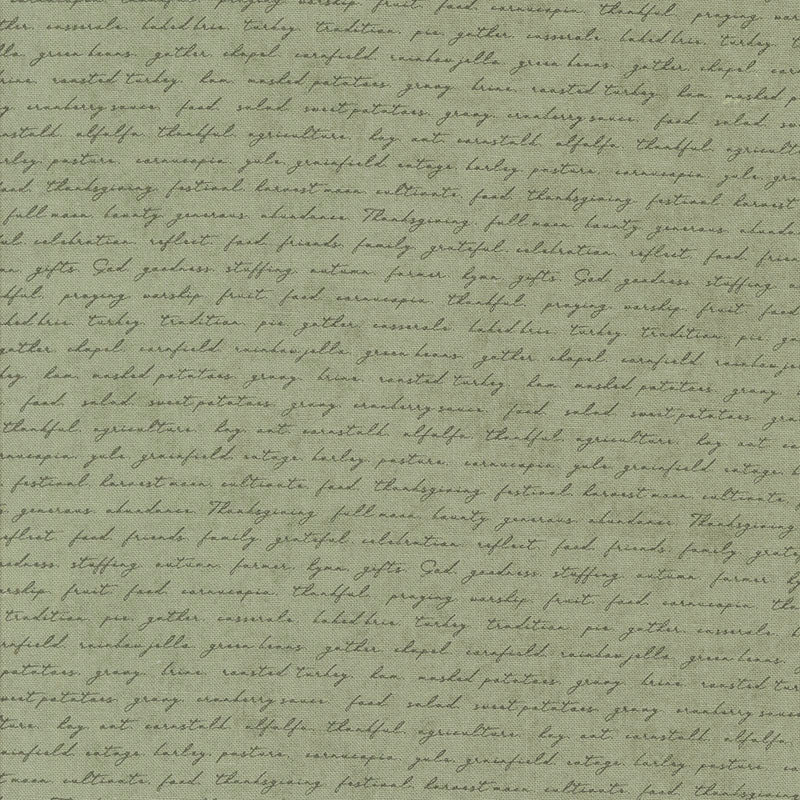 cornucopia. thankful. praying worship. fruit. food. cornucopia. thankful. praying. wor
ther. casserole. baked brie. turkey. tradition. pie. gather. casserole. baked brie. turkey. t
lla. green beans. gather. chapel. cornfield. rainbow jello. green beans. gather. chapel. cor
rine. roasted turkey. ham. mashed potatoes. gravy. brine. roasted turkey. ham. mashed p
y. cranberry sauce. food. salad. sweet potatoes. gravy. cranberry sauce. food. salad. sw
nstalk. alfalfa. thankful. agriculture. hay. oat. cornstalk. alfalfa. thankful. agricult
rley. pasture. cornucopia. yule. grainfield. cotage. barley. pasture. cornucopia. yule. gra
ood. thanksgiving. festival. harvest moon. cultivate. food. thanksgiving. festival. harvest
full moon. bounty. generous. abundance. Thanksgiving. full moon. bounty. generous. abunda
ul. celebration. reflect. food. friends. family. grateful. celebration. reflect. food. frien
mn. gifts. God. goodness. stuffing. autumn. farmer. hymn. gifts. God. goodness. stuffing. a
kful. praying. worship. fruit. food. cornucopia. thankful. praying. worship. fruit. food
ked brie. turkey. tradition. pie. gather. casserole. baked brie. turkey. tradition. pie. ga
gather. chapel. cornfield. rainbow jello. green beans. gather. chapel. cornfield. rainbow je
key. ham. mashed potatoes. gravy. brine. roasted turkey. ham. mashed potatoes. gravy.
food. salad. sweet potatoes. gravy. cranberry sauce. food. salad. sweet potatoes. gra
thankful. agriculture. hay. oat. cornstalk. alfalfa. thankful. agriculture. hay. oat. co
rnucopia. yule. grainfield. cotage. barley. pasture. cornucopia. yule. grainfield. cotage. b
. festival. harvest moon. cultivate. food. thanksgiving. festival. harvest moon. cultivate.
y. generous. abundance. Thanksgiving. full moon. bounty. generous. abundance. Thanksgiving
eflect. food. friends. family. grateful. celebration. reflect. food. friends. family. grate
odness. stuffing. autumn. farmer. hymn. gifts. God. goodness. stuffing. autumn. farmer. hy
orship. fruit. food. cornucopia. thankful. praying. worship. fruit. food. cornucopia. tha
tradition. pie. gather. casserole. baked brie. turkey. tradition. pie. gather. casserole. b
rnfield. rainbow jello. green beans. gather. chapel. cornfield. rainbow jello. green beans.
potatoes. gravy. brine. roasted turkey. ham. mashed potatoes. gravy. brine. roasted tur
weet potatoes. gravy. cranberry sauce. food. salad. sweet potatoes. gravy. cranberry sauce
ture. hay. oat. cornstalk. alfalfa. thankful. agriculture. hay. oat. cornstalk. alfalfa.
ainfield. cotage. barley. pasture. cornucopia. yule. grainfield. cotage. barley. pasture. co
t moon. cultivate. food. thanksgiving. festival. harvest moon. cultivate. food. thanksgiving